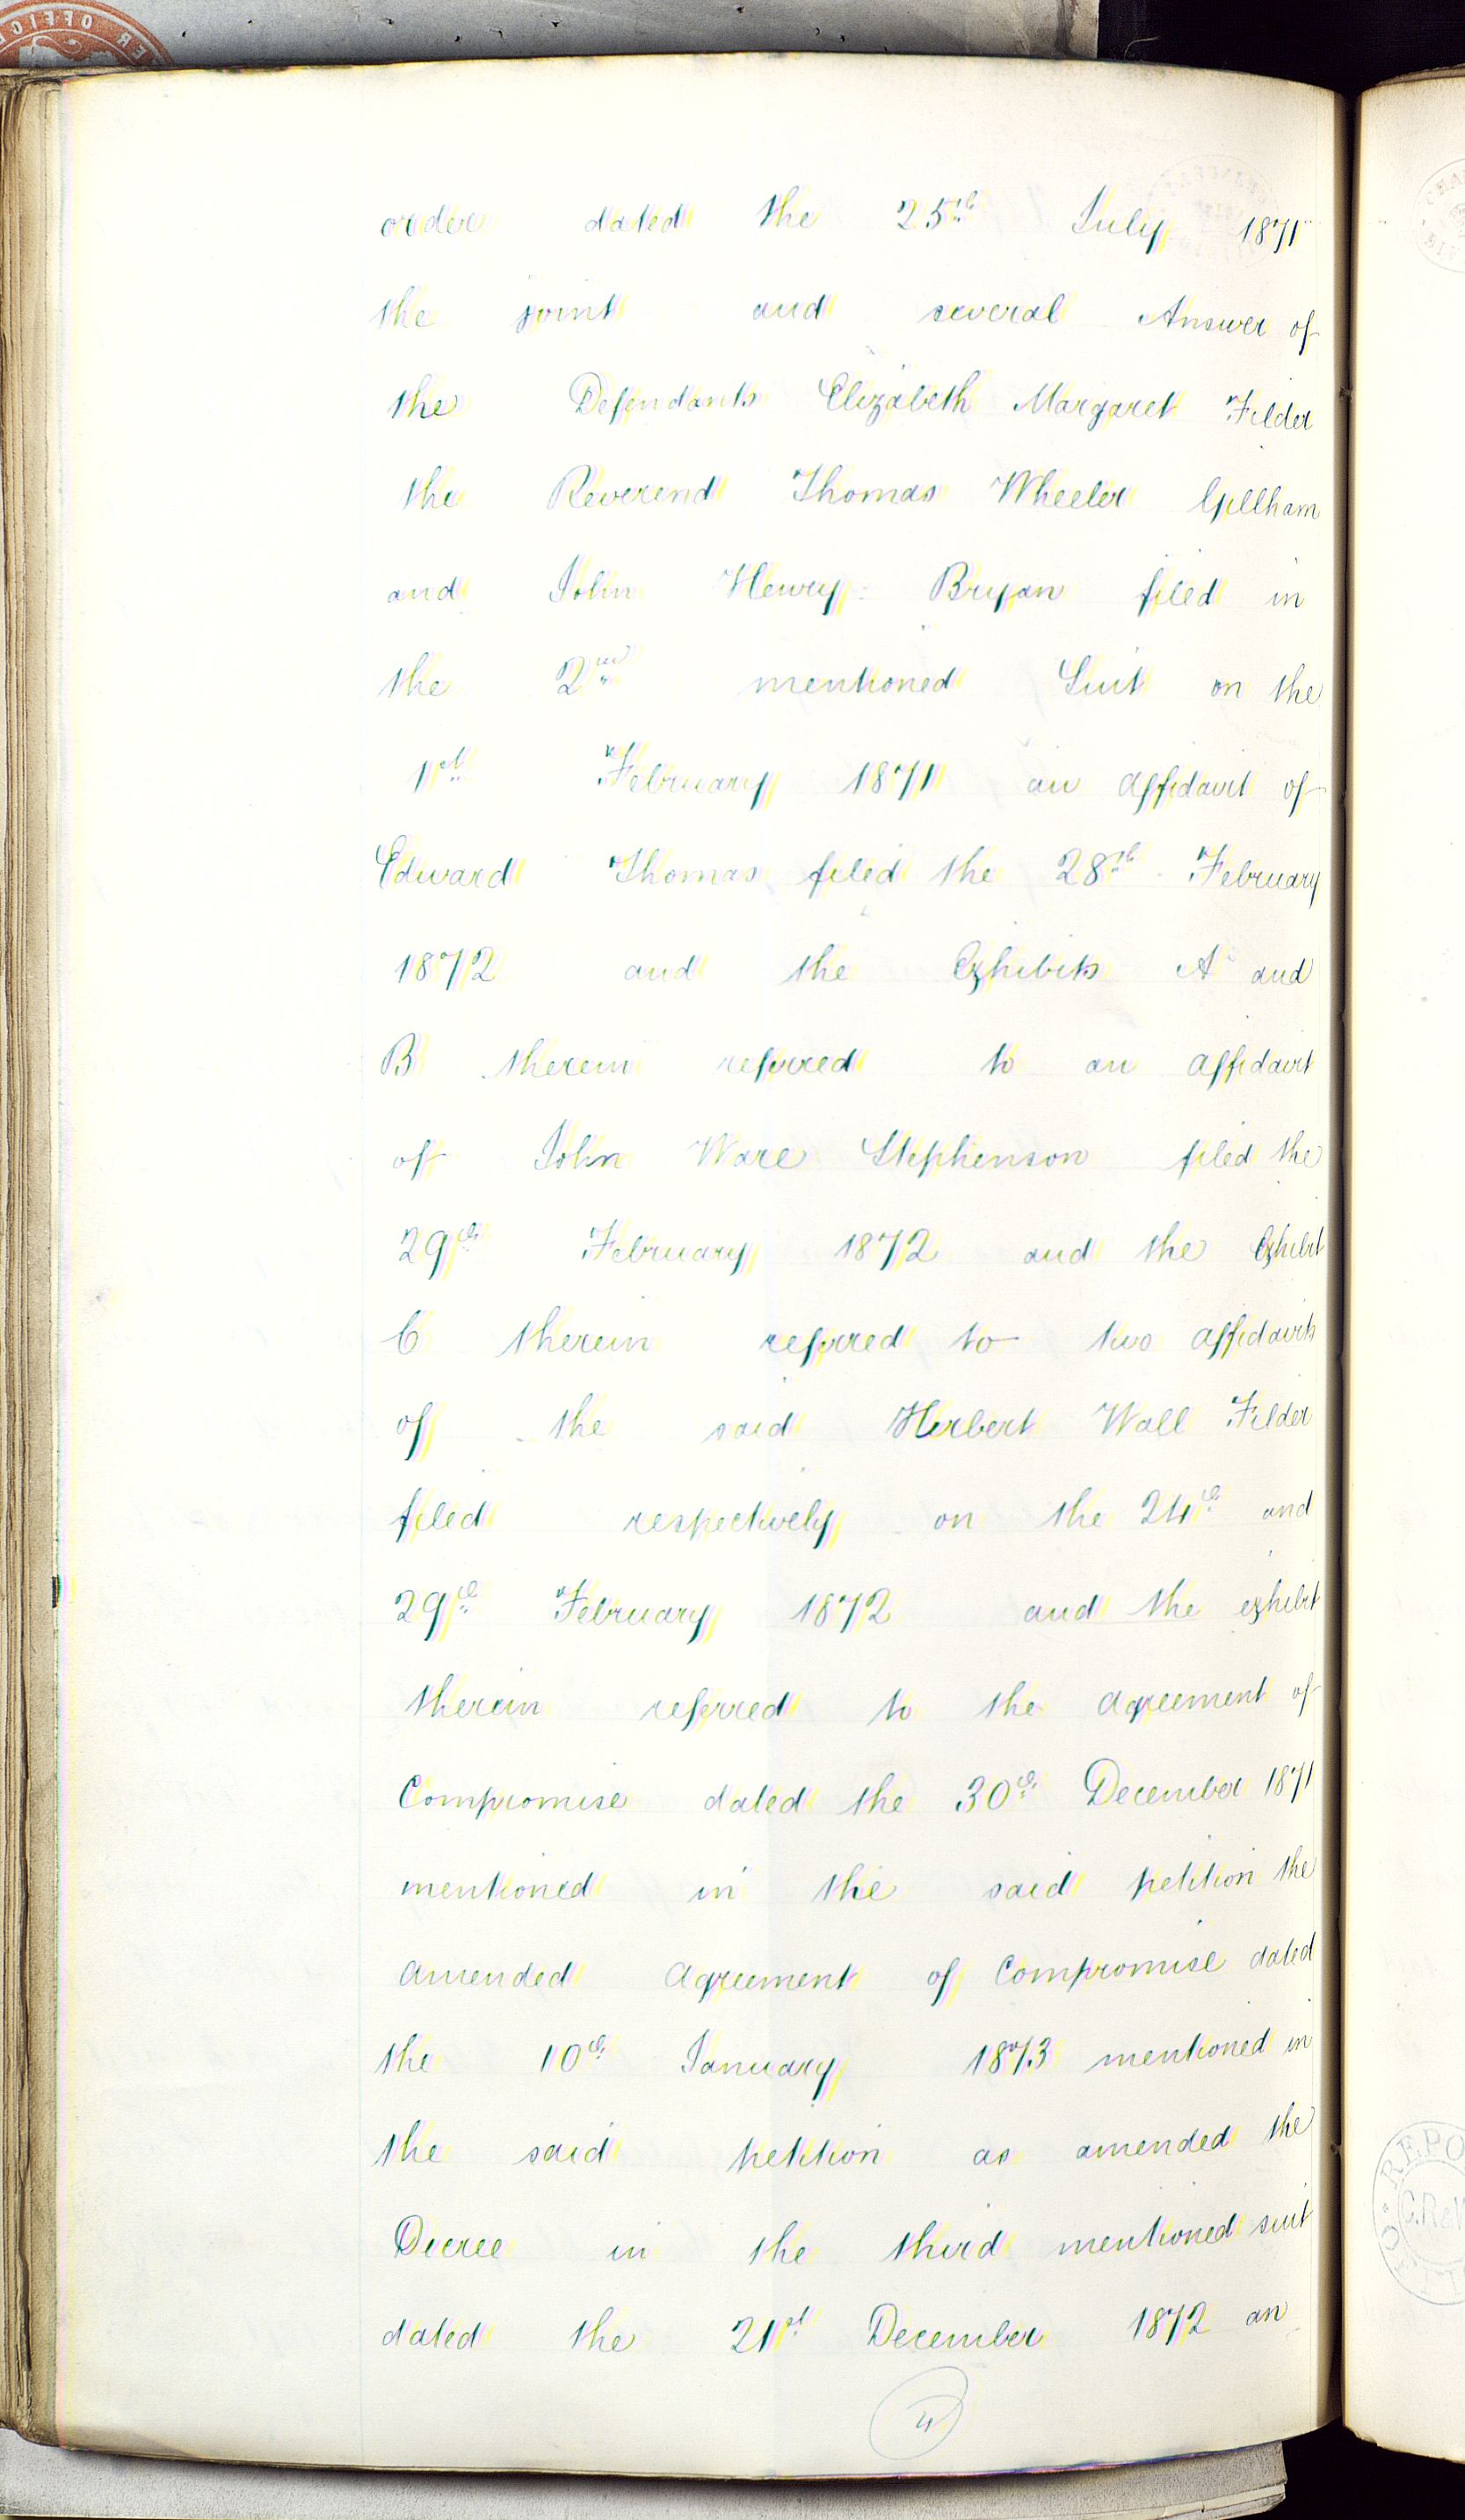 order dated the 25th July 1871
the joint and several Answer of
the Defendants Elizabeth Margaret Filder
the Reverend Thomas Wheeler Gillham
and John Henry Bryan filed in
the 2nd mentioned Suit on the
1st February 1871 an affidavit of
Edward Thomas filed the 28th February
1872 and the Exhibits A and
B therein referred to an affidavit
of John Ware Stephenson filed the
29th February 1872 and the Exhibit
C therein referred to two affidavits
of the said Herbert Wall Filder
filed respectively on the 24th and
29th February 1872 and the exhibit
therein referred to the agreement of
Compromise dated the 30th December 1871
mentioned in the said petition the
amended agreement of Compromise dated
the 10th January 1873 mentioned in
the said petition as amended the
Decree in the third mentioned suit
dated the 21st December 1872 an